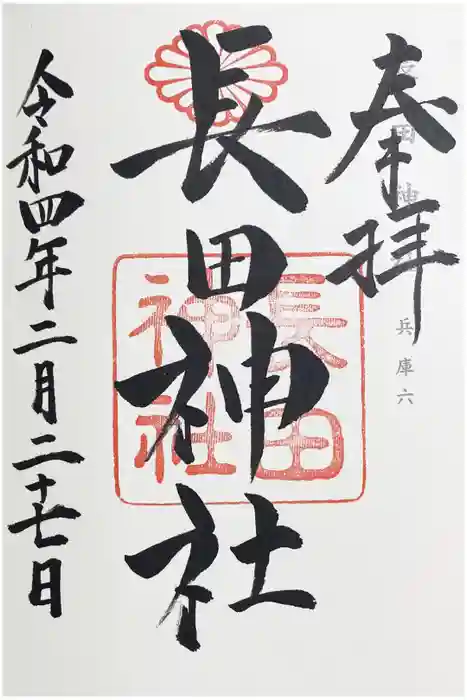 奉拝
長田神社
兵庫六
長田神社
長田神社
令和四年二月二十七日